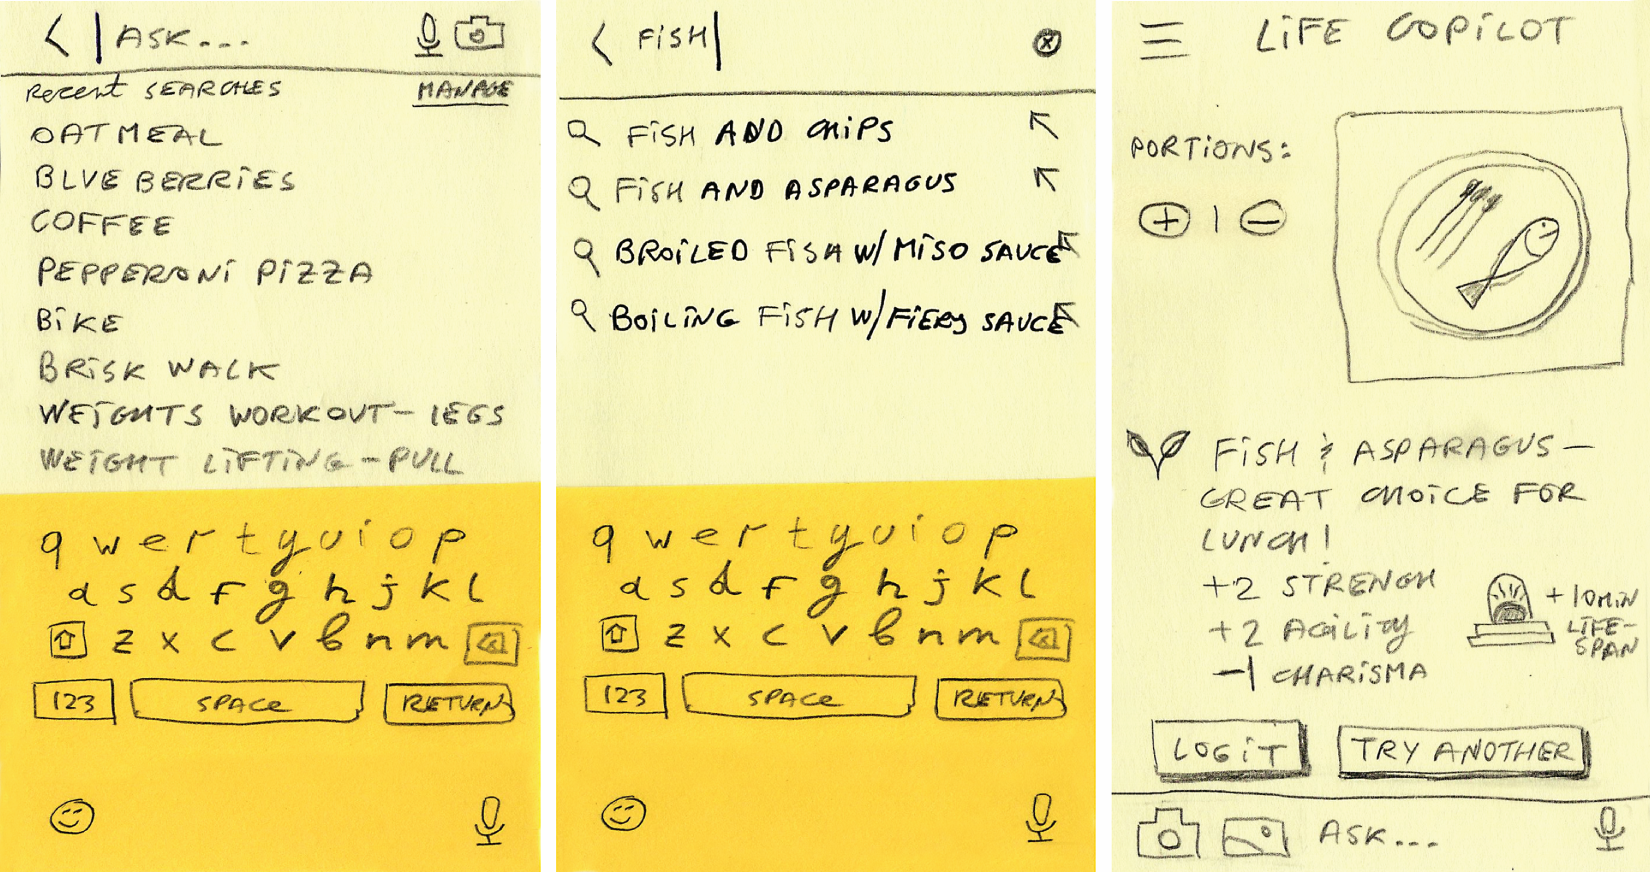 ASK...
Recent SEARCHES MANAGE
OATMEAL
BLUEBERRIES
COFFEE
PEPPERONi PiZZA
BiKE
BRiSK WALK
WEiGHTS WORKOUT- LEGS
WEiGHT LiFTiNG-PULL
q w e r t y u i o p
a s d f g h j k l
z x c v b n m
123 SPACe RETURN
FiSH
FiSH AND CHiPS
FiSH AND ASPARAGUS
BROiLED FiSH W/ MiSO SAUCE
BOiLiNG FiSH W/FiERy SAUCE
q w e r t y u i o p
a s d f g h j k l
z x c v b n m
123 SPACe RETURN
LiFE COPiLOT
PORTiONS:
+ | -
FiSH & ASPARAGUS-
GREAT CHOiCE FOR
LUNCH!
+2 STRENGH
+2 AGiLiTy
-1 CHARiSMA
+10MiN
LiFE-
SPAN
LOG iT TRY ANOTHER
ASK...